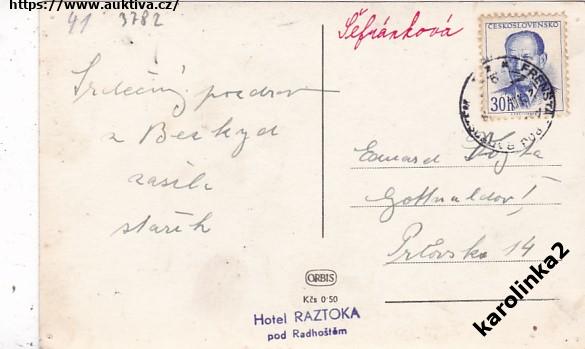 https://www.auktiva.cz/
41 3782
Šefránková
ČESKOSLOVENSKO
30h
FRENŠTÁT POD RADHOŠTĚM
Srdečný pozdrav
z Beskyd
zasílá
stařík
Eduard Vojta
Gottwaldov!
14
ORBIS
Kčs 0·50
Hotel RAZTOKA
pod Radhoštěm
karolinka2